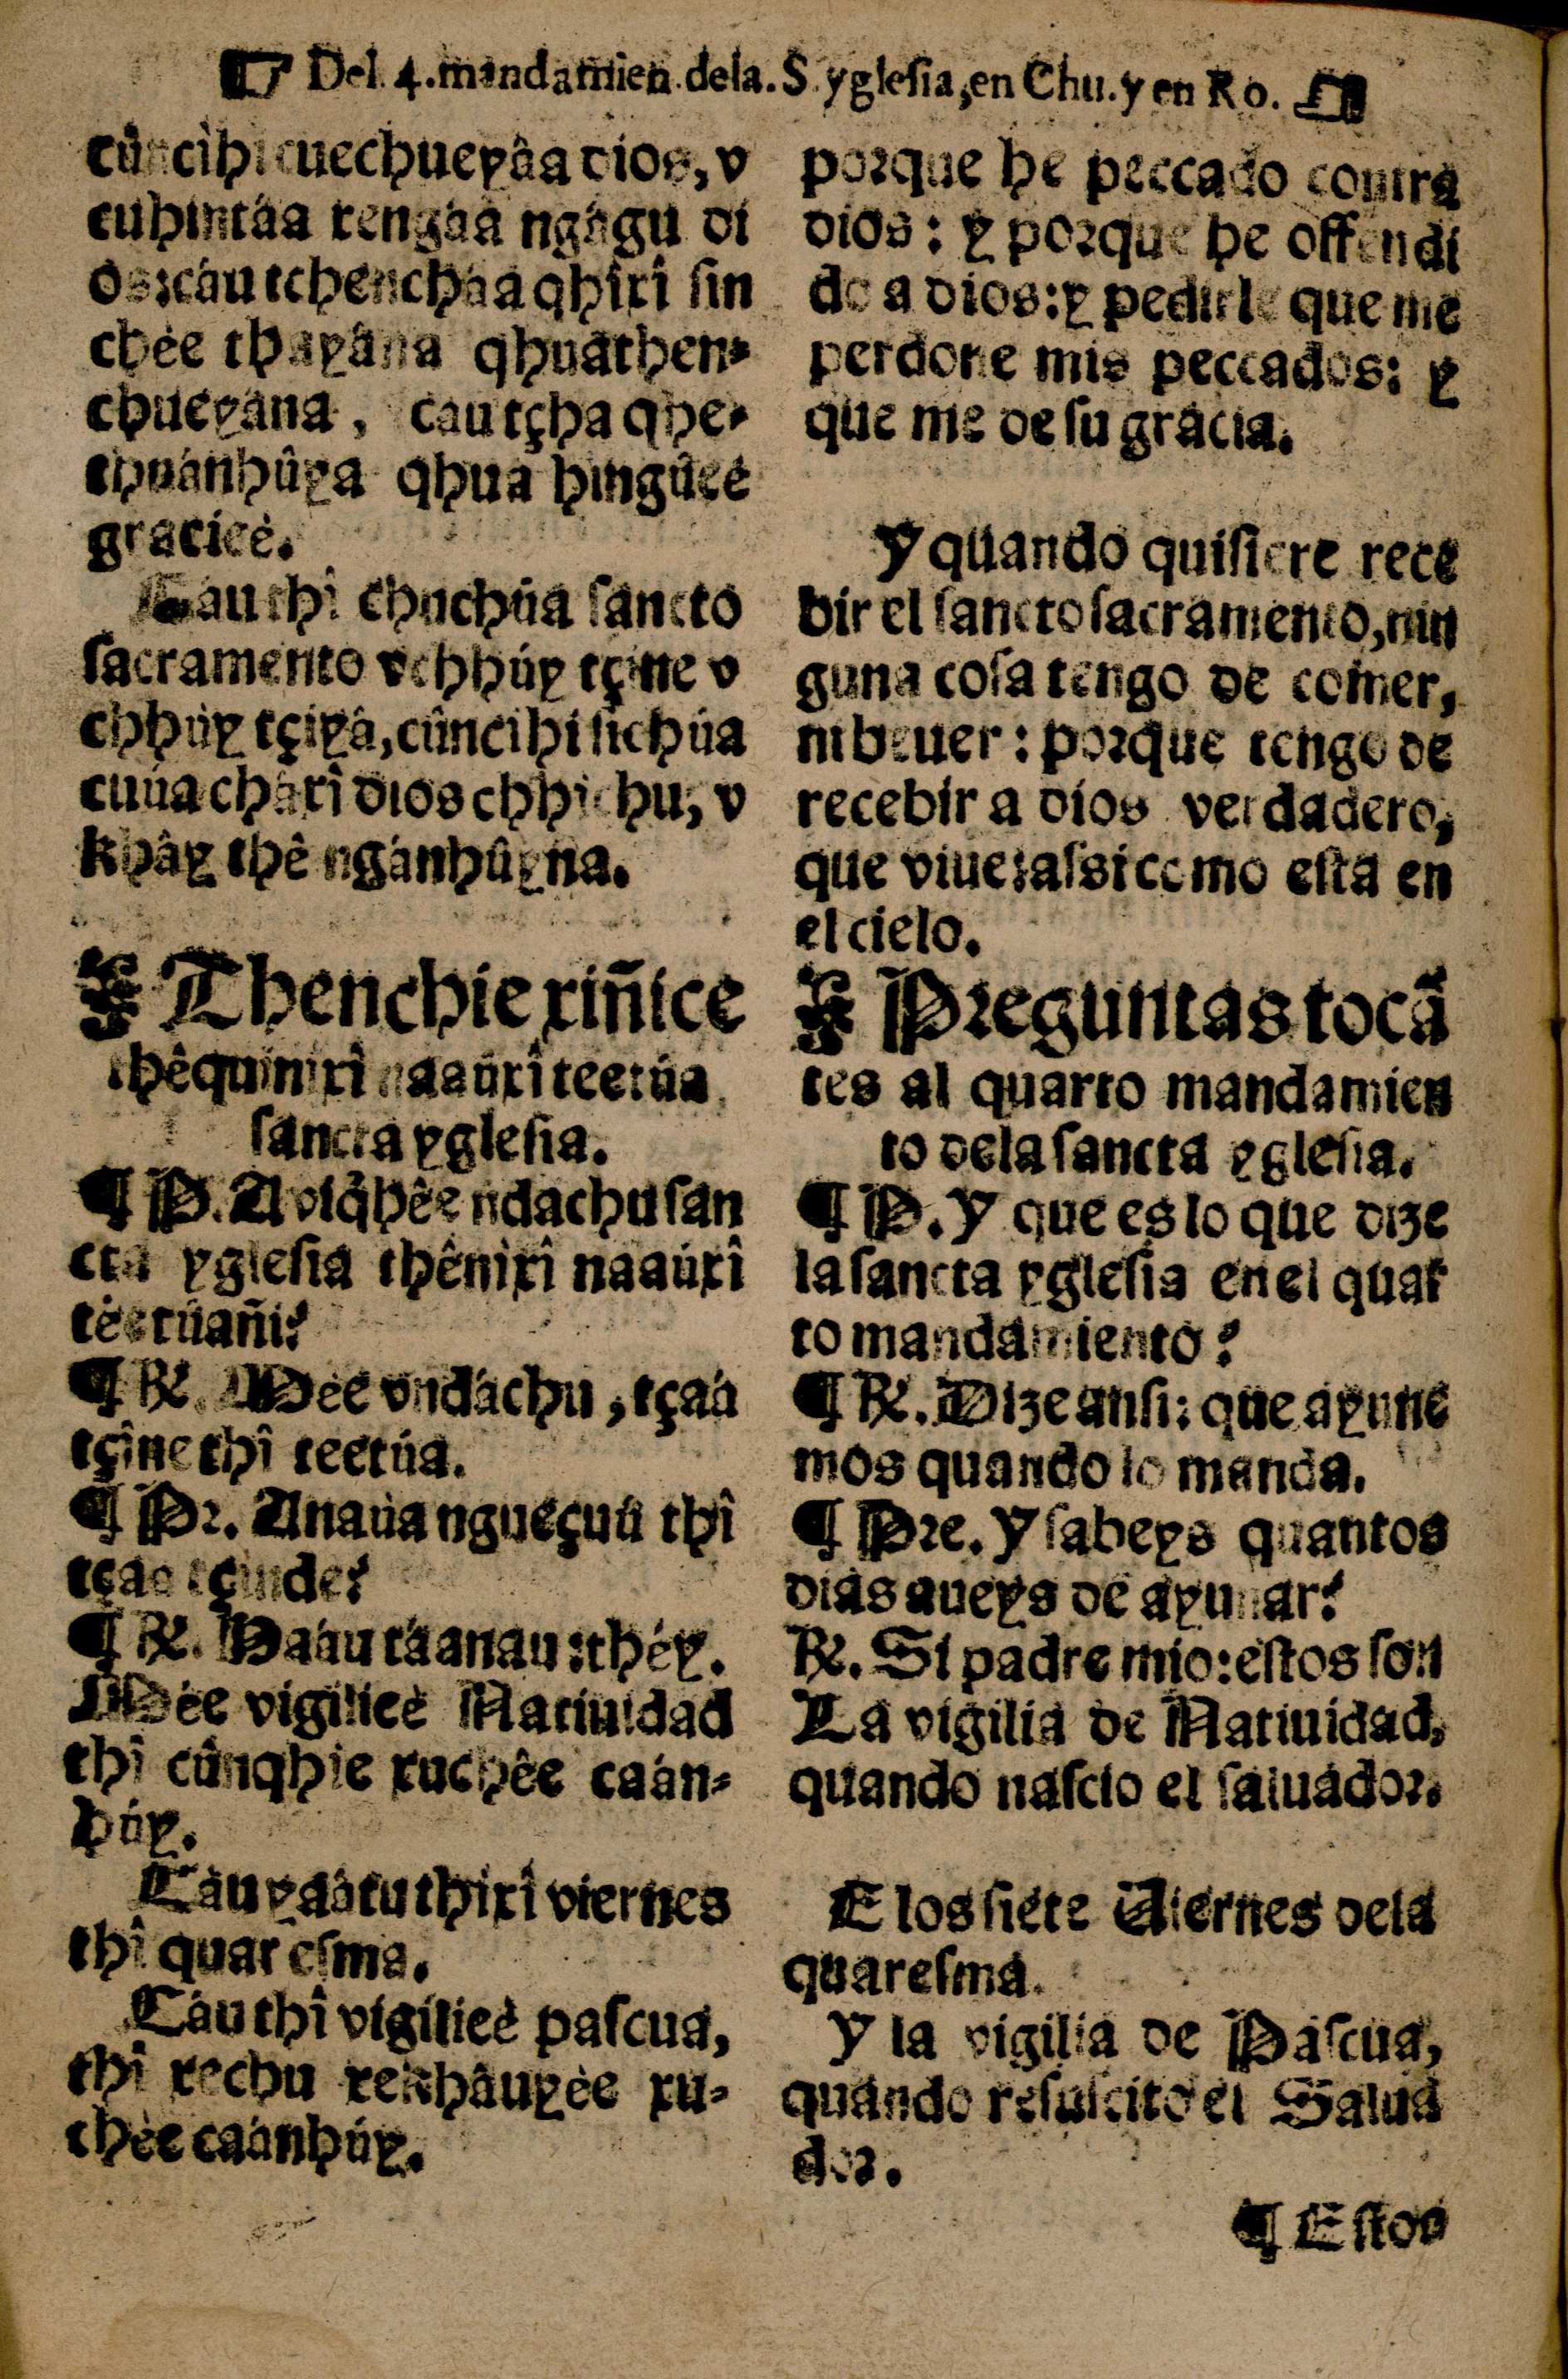 ☞ Del. 4. mandamien. dela. S. yglesia, en Chu. y en Ro. ☜
cûncìhi cuechueyâa dios, v
cuhintáa rengâa ngúgu di
os: cáu tchenchâa qhîrî sin
chèe thayána qhuáthen-
chueyána, cau tçha qhe-
thuánhûya qhua hingûeè
gracieè.
Cau thî chuchúa sancto
sacramento vchhúy tçîne v
chhúy tçiyâ, cûncihi sichúa
cuúa chárî dios chhichu, v
khây thê ngánhûyna.
Thenchie riñice
thêquinirî naaúrî teetúa
sancta yglesia.
¶ P. A viq̃hêe ndachu san
cta yglesia thênirî naaúrî
tèetúañi?
¶ R⁄. Mée vndáchu, tçaá
tçîne thî teetúa.
¶ Pr. Anaúa nguéçuú thî
tçao tçinde?
¶ R⁄. Haáu táanau: théy.
Mée vigilieè Natiuidad
thî cûnqhie ruchêe caán-
húy.
Càu yaátu thirî viernes
thî quaresma.
Càu thî vigilieè pascua,
thî rechu rekhâuyèe ru-
chèe caánhúy.
porque he peccado contra
dios: y porque he offendi
do a dios: y pedirle que me
perdone mis peccados: y
que me de su gracia.
Y quando quisiere rece
bir el sancto sacramento, nin
guna cosa tengo de comer,
ni beuer: porque tengo de
recebir a dios verdadero,
que viue: assi como esta en
el cielo.
Preguntas tocã
tes al quarto mandamien
to dela sancta yglesia.
¶ P. Y que es lo que dize
la sancta yglesia en el quar
to mandamiento?
¶ R⁄. Dize ansi: que ayune
mos quando lo manda.
¶ Pre. Y sabeys quantos
dias aueys de ayunar?
R⁄. Si padre mio: estos son
La vigilia de Natiuidad,
quando nascio el saluador.
E los siete Uiernes dela
quaresma.
Y la vigilia de Pascua,
quando resuscito el Salua
dor.
¶ Estos